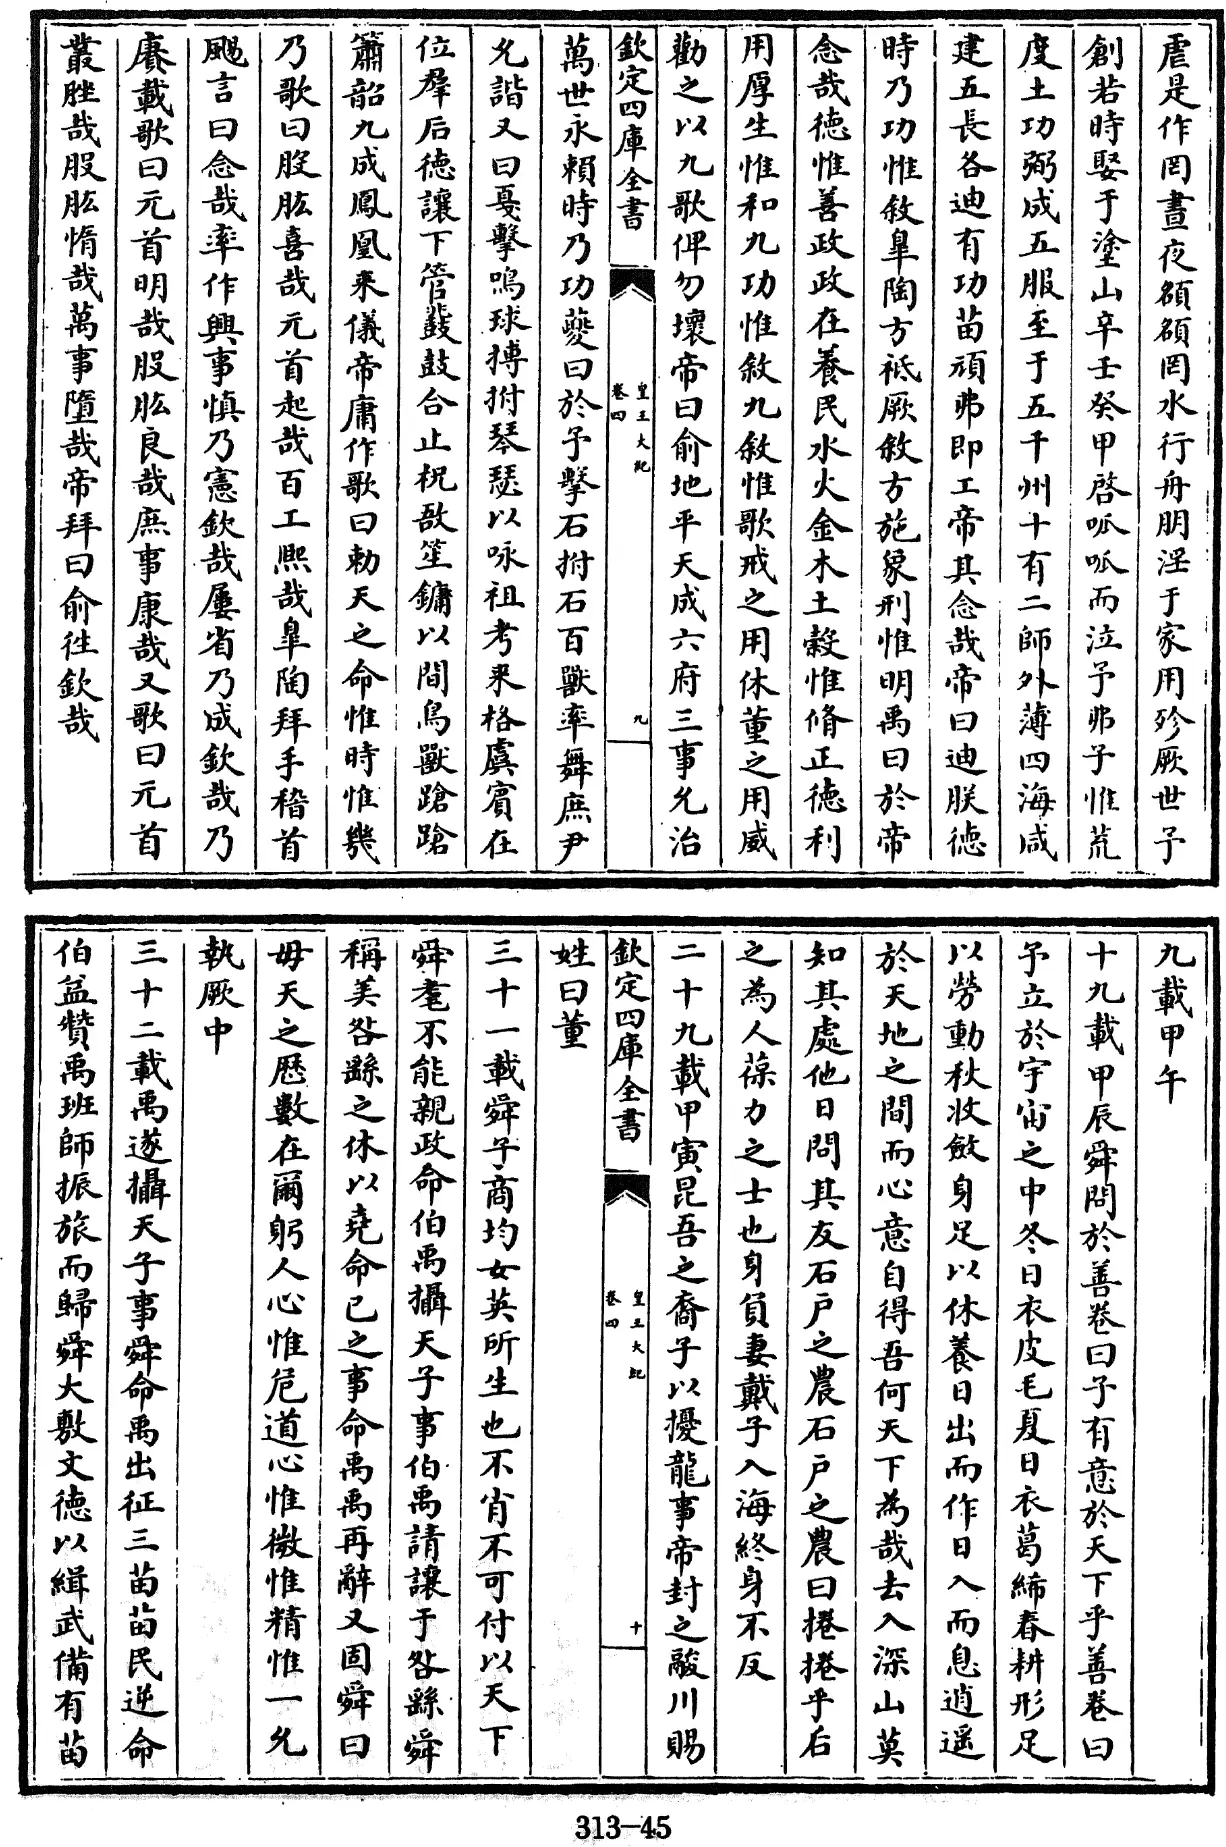 虐是作罔晝夜頟頟罔水行舟朋淫于家用殄厥世予
創若時娶于塗山辛壬癸甲啓呱呱而泣予弗子惟荒
度土功弼成五服至于五千州十有二師外薄四海咸
建五長各迪有功苗頑弗即工帝其念哉帝曰迪朕德
時乃功惟敘臯陶方祗厥敘方施象刑惟明禹曰於帝
念哉德惟善政政在養民水火金木土穀惟脩正德利
用厚生惟和九功惟敘九敘惟歌戒之用休董之用威
勸之以九歌俾勿壞帝曰俞地平天成六府三事允治
欽定四庫全書
皇王大紀
卷四
九
萬世永賴時乃功夔曰於予擊石拊石百獸率舞庶尹
允諧又曰戛擊鳴球搏拊琴瑟以咏祖考来格虞賓在
位羣后德讓下管鼗鼓合止柷敔笙鏞以間鳥獸蹌蹌
簫韶九成鳳凰来儀帝庸作歌曰勅天之命惟時惟幾
乃歌曰股肱喜哉元首起哉百工熙哉臯陶拜手稽首
颺言曰念哉率作興事慎乃憲欽哉屢省乃成欽哉乃
賡載歌曰元首明哉股肱良哉庶事康哉又歌曰元首
叢脞哉股肱惰哉萬事墮哉帝拜曰俞往欽哉
九載甲午
十九載甲辰舜問於善卷曰子有意於天下乎善卷曰
予立於宇宙之中冬日衣皮毛夏日衣葛絺春耕形足
以勞動秋收斂身足以休養日出而作日入而息逍遥
於天地之間而心意自得吾何天下為哉去入深山莫
知其處他日問其友石戸之農石戸之農曰捲捲乎后
之為人葆力之士也身負妻戴子入海終身不反
二十九載甲寅昆吾之裔子以擾龍事帝封之鬷川賜
欽定四庫全書
皇王大紀
卷四
十
姓曰董
三十一載舜子商均女英所生也不肖不可付以天下
舜耄不能親政命伯禹攝天子事伯禹請讓于咎繇舜
稱美咎繇之休以堯命已之事命禹禹再辭又固舜曰
毋天之厯數在爾躬人心惟危道心惟微惟精惟一允
執厥中
三十二載禹遂攝天子事舜命禹出征三苗苗民逆命
伯益贊禹班師振旅而歸舜大敷文德以緝武備有苗
313-45